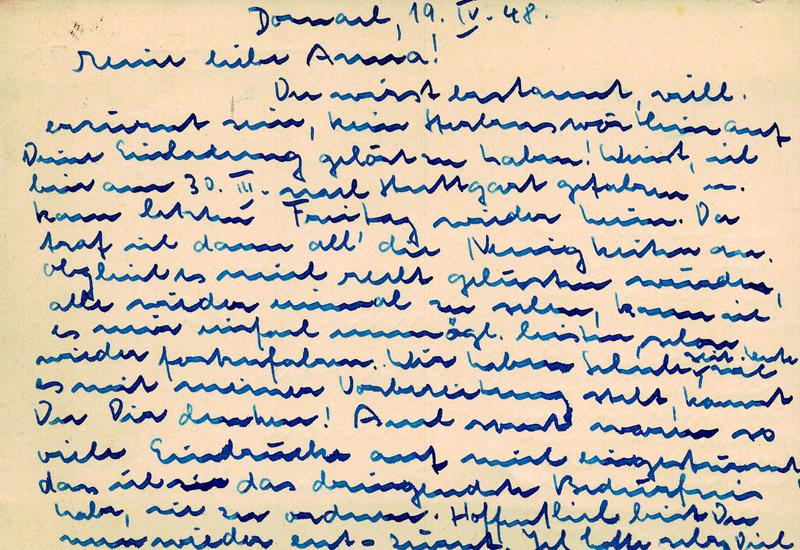 Dornach, 19. IV. 48.
Meine liebe Anna!
Du wirst erstaunt, viell.
erzürnt sein, kein Sterbenswörtlein auf
Deine Einladung gehört zu haben! Weisst, ich
bin am 30. III. nach Stuttgart gefahren u.
kam letzten Freitag wieder heim. Da
traf ich dann all' die Neuigkeiten an.
Obgleich es mich recht gelüsten würde,
alle wieder einmal zu sehen, kann ich
es mir einfach unmögl. leisten, schon
wieder fortzufahren. Wir haben Schule seit heute, wie
es mit meiner Vorbereitung steht, kannst
Du Dir denken! Auch sonst waren so
viele Eindrücke auf mich eingestürmt
dass ich das dringendste Bedürfnis
habe, sie zu ordnen. Hoffentlich bist Du
nun wieder ent-zürnt. Ich hoffe sehr, Dich